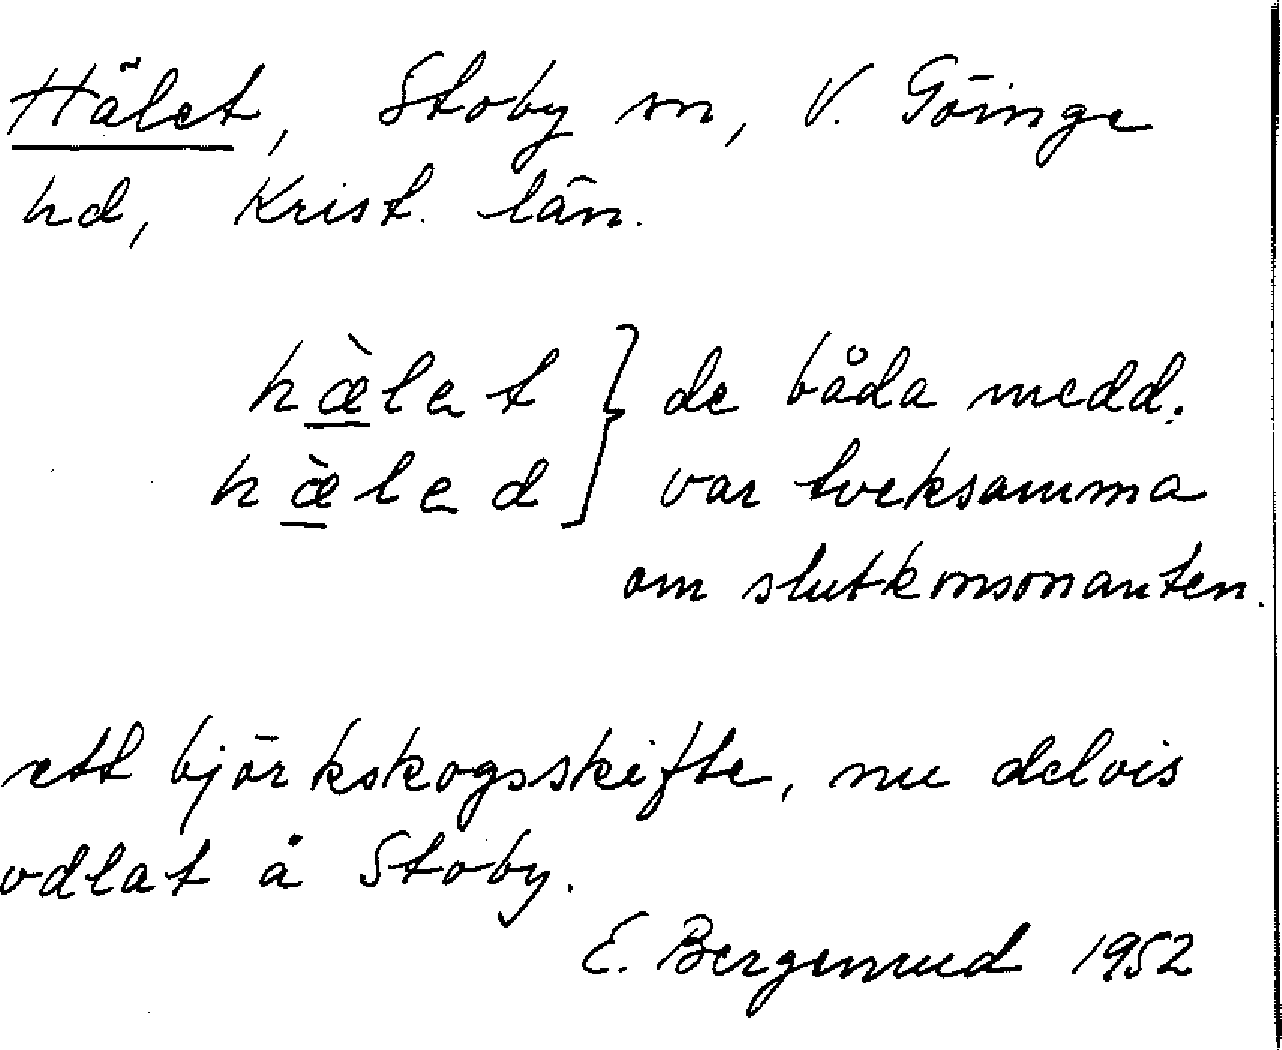 Hälet, Stoby sn, V. Göinge
hd, Krist. län.
hæ̀let } de båda medd.
hæ̀led } var tveksamma
om slutkonsonanten.
ett björkskogsskifte, nu delvis
odlat å Stoby.
E. Bergenrud 1952